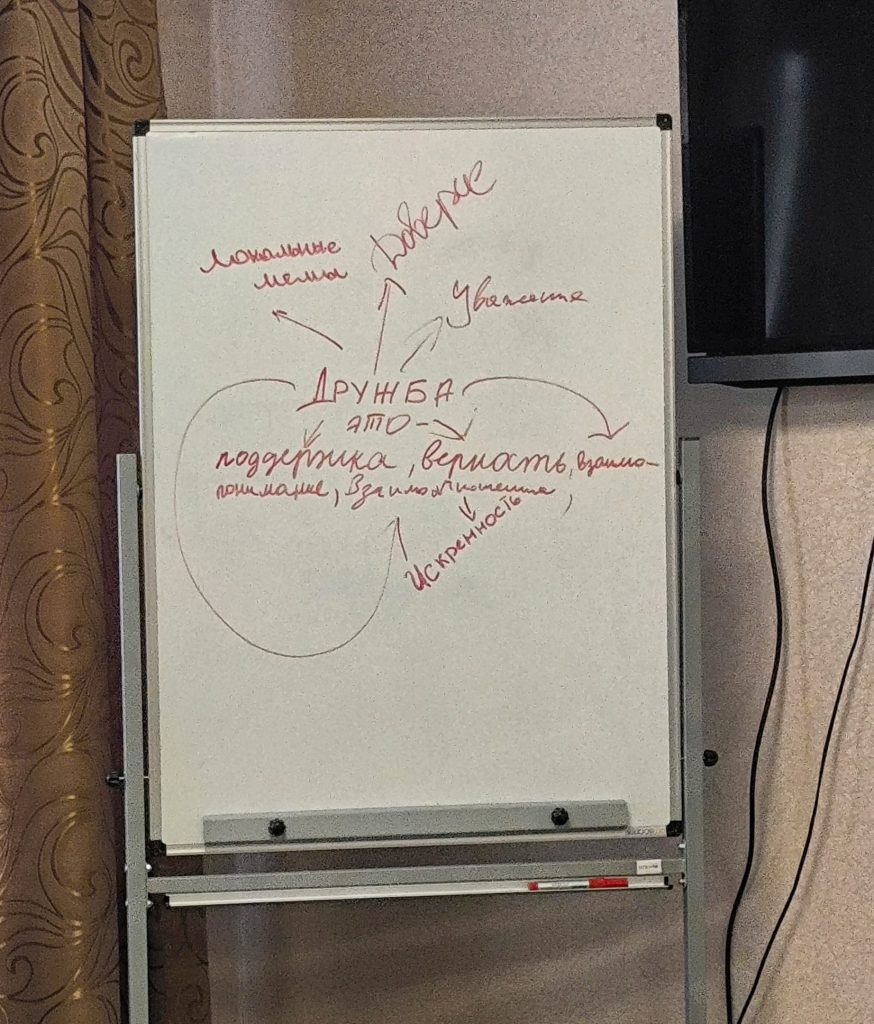 Доверие
локальные
мемы
Уважение
ДРУЖБА
это
поддержка, верность, взаимо-
понимание, Взаимоотношения,
Искренность